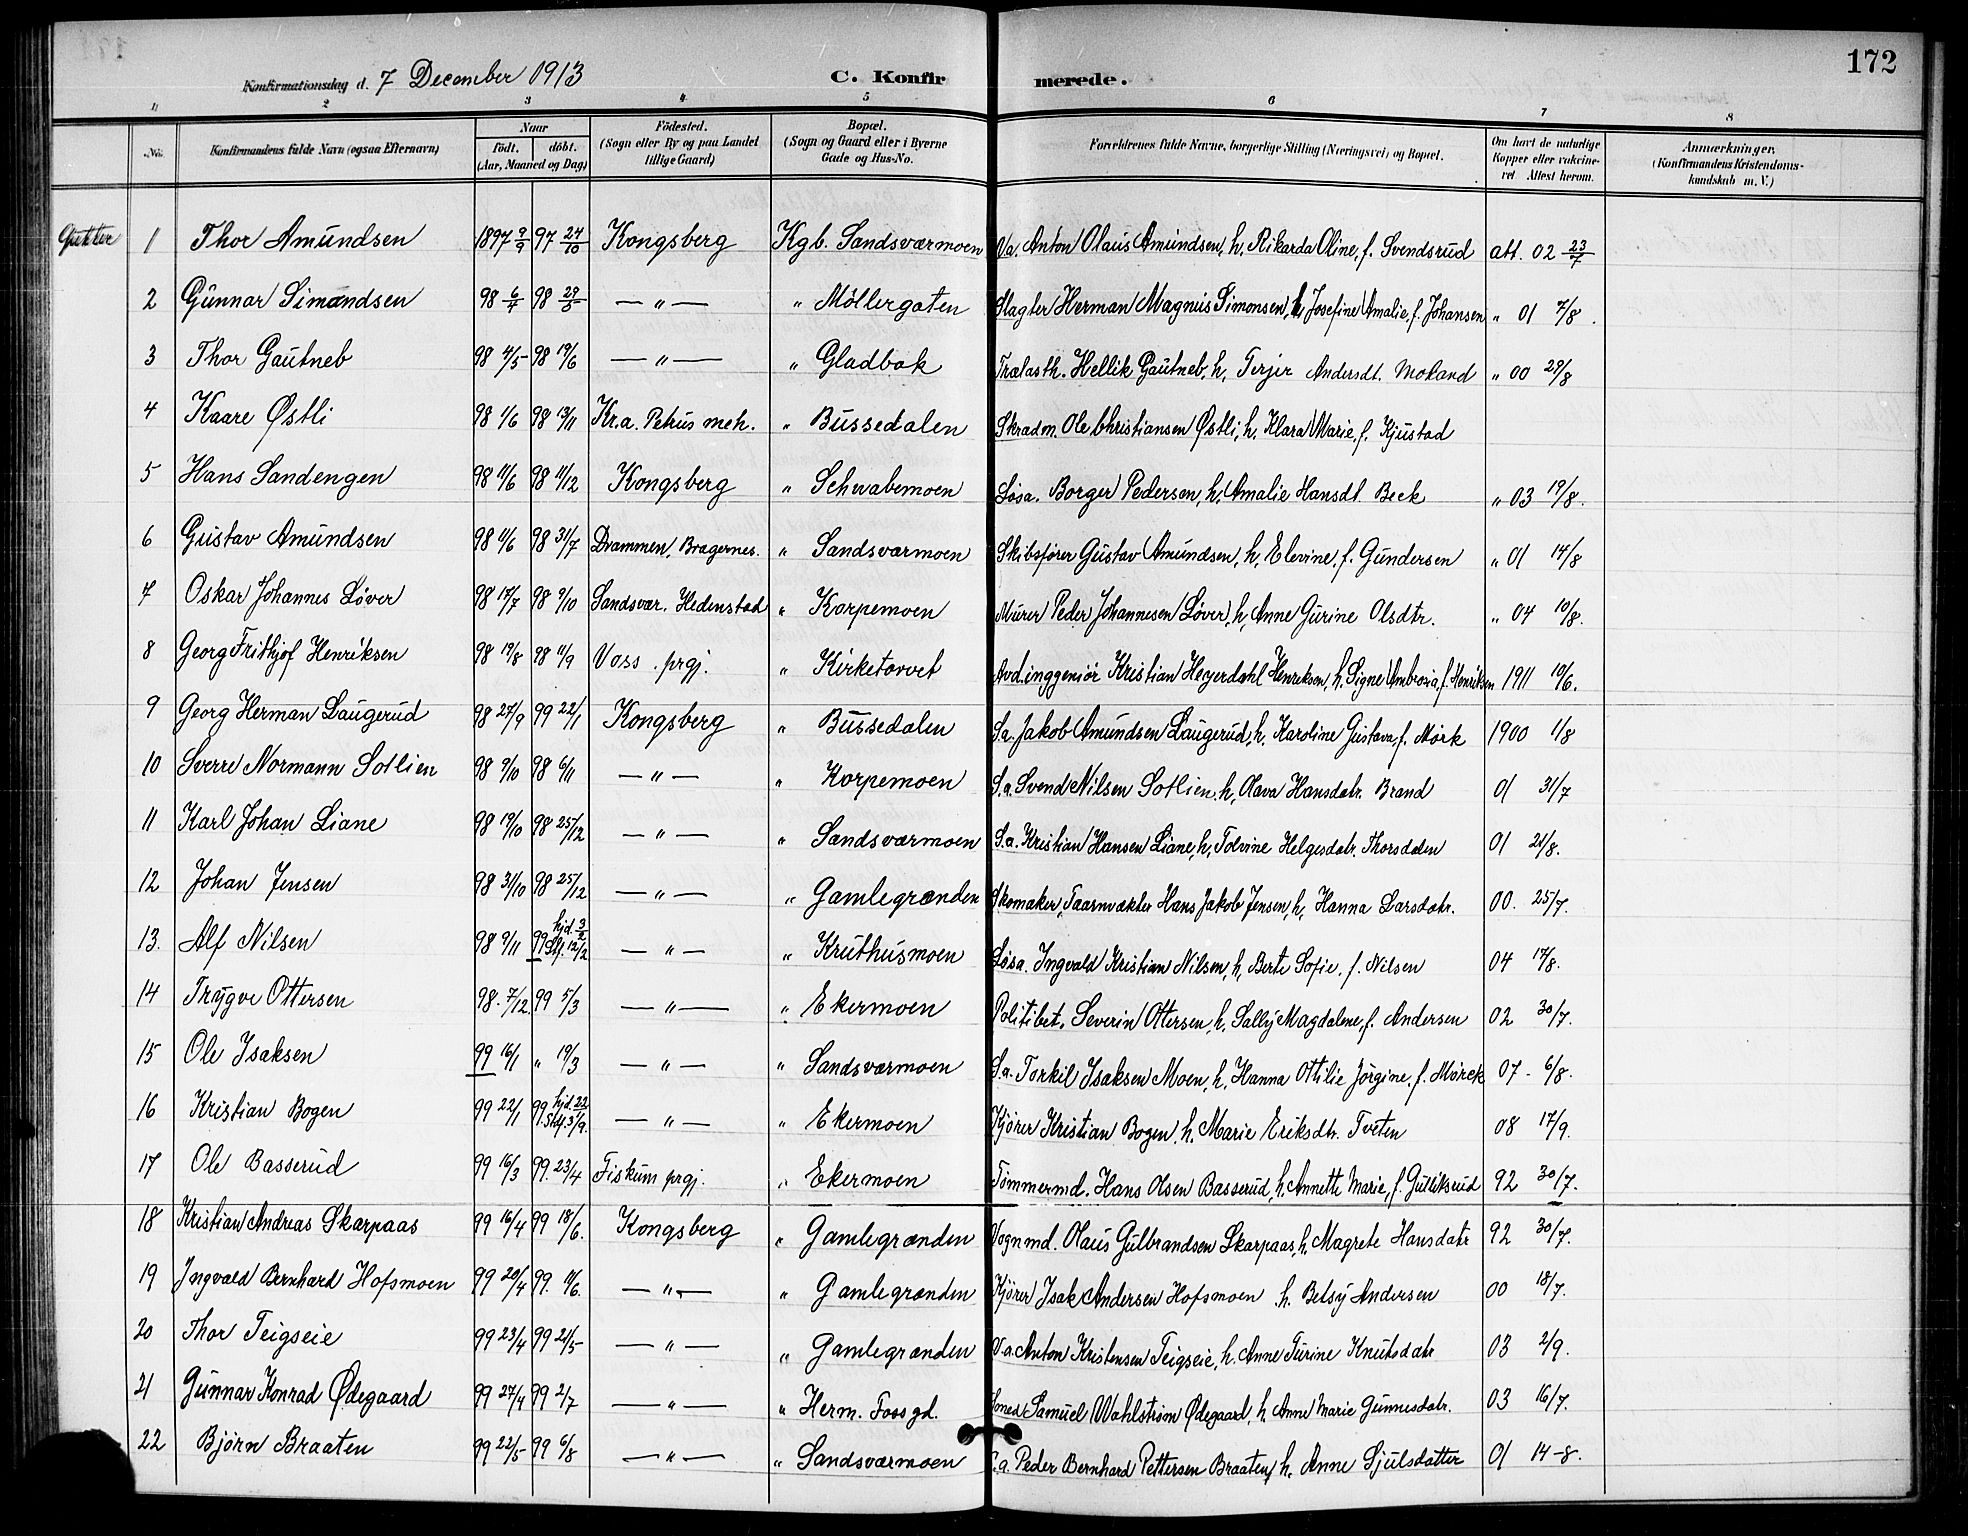 172
Konfirmationsdag d. 7 December 1913 C. Konfirmerede.
1 2 3 4 5 6 7 8
No. Konfirmandens fulde Navn (ogsaa Efternavn) Naar födt. döbt. (Aar, Maaned og Dag) Födested. (Sogn eller By og paa Landet tillige Gaard) Bopæl. (Sogn og Gaard eller i Byerne Gade og Hus-No. Forældrenes fulde Navne, borgerlige Stilling (Næringsvei) og Bopæl. Om havt de naturlige Kopper eller vakcineret Attest herom. Anmærkninger. (Konfirmandens Kristendomskundskab m. V.)
Gutter 1 Thor Amundsen 1897 9/9 97 24/10 Kongsberg Kgb. Sandsværmoen Va. Anton Olaus Amundsen, h. Rikarda Oline, f. Svendsrud att. 02 23/7
2 Gunnar Simondsen 98 6/4 98 29/5 — " — " Möllergaten Slagter Herman Magnus Simonsen, h. Josefine Amalie, f. Johansen " 01 7/8.
3 Thor Gautneb 98 4/5 98 19/6 — " — " Gladbak Trælasth. Hellik Gautneb, h. Terjer Andersdt. Moland " 00 29/8
4 Kaare Østli 98 1/6 98 13/11 Kr.a. Petrus meh. " Bussedalen Skradm. Ole Christiansen Østli, h. Klara Marie, f. Kjustad
5 Hans Sandengen 98 11/6 98 11/12 Kongsberg " Schwabemoen Løsa. Borger Pedersen, h. Amalie Hansdt. Beck " 03 19/8.
6 Gustav Amundsen 98 11/6 98 31/7 Drammen, Bragernes. " Sandsværmoen Skibsfører Gustav Amundsen, h. Elevine, f. Gundersen " 01 14/8
7 Oskar Johannes Løver 98 17/7 98 9/10 Sandsvær. Hedenstad " Korpemoen Murer Peder Johannesen Løver, h. Anne Gurine Olsdtr. " 04 10/8.
8 Georg Frithjof Henriksen 98 19/8 98 11/9 Voss. prgj. " Kirketorvet Avd.inggeniör Kristian Heyerdahl Henriksen, h. Signe Ambrosia, f. Henriksen 1911 10/6.
9 Georg Herman Laugerud 98 27/9 99 22/1 Kongsberg " Bussedalen Sa. Jakob Amundsen Laugerud, h. Karoline Gustava, f. Mørk 1900 1/8
10 Sverre Normann Sotlien 98 9/10 98 6/11 — " — " Korpemoen S.a. Svend Nilsen Sotlien, h. Olava Hansdatr. Brand 01 31/7
11 Karl Johan Liane 98 19/10 98 25/12 — " — " Sandsværmoen S.a. Kristian Hansen Liane, h. Tolvine Helgesdatr. Thorsdalen 01 21/8.
12 Johan Jensen 98 31/10 98 25/12 — " — " Gamlegrænden Skomaker, Taarnvækter Hans Jakob Jensen, h. Hanna Larsdatr. 00. 25/7.
13. Alf Nilsen 98 9/11 99 hjd. 3/2 Stf. 12/2 — " — " Kruthusmoen Løsa. Ingvald Kristian Nilsen, h. Berte Sofie, f. Nilsen 04 17/8.
14 Trygve Ottersen 98. 7/12. 99 5/3 — " — " Ekermoen Politibet. Severin Ottersen, h. Sally Magdalene, f. Andersen 02 30/7.
15 Ole Isaksen 99 16/1 " 19/3 — " — " Sandsværmoen S.a. Torkil Isaksen Moen, h. Hanna Ottilie Jörgine, f. Mørck 07 - 6/8.
16 Kristian Bogen 99 22/1 99. hjd. 22/1 Stf. 3/9. — " — " Ekermoen Kjører Kristian Bogen, h. Marie Eriksdtr. Tveten 08 17/9.
17 Ole Basserud 99 16/3 99. 23/4 Fiskum prgj. " Ekermoen Tømmermd. Hans Olsen Basserud, h. Annette Marie, f. Gulliksrud 92 30/7.
18 Kristian Andreas Skarpaas 99 16/4 99 18/6. Kongsberg " Gamlegrænden Vognmd. Olaus Gulbrandsen Skarpaas, h. Magrete Hansdatr 92 30/7.
19 Ingvald Bernhard Hofsmoen 99 20/4 99. 11/6. — " — " Gamlegrænden Kjører Isak Andersen Hofsmoen h. Betsy Andersen 00 18/7.
20 Thor Teigseie 99 23/4 99 21/5 — " — " Gamlegrænden V.a. Anton Kristensen Teigseie, h. Anne Turine Knutsdatr 03 2/9.
21 Gunnar Konrad Ødegaard 99 27/4 99 2/7 — " — " Herm. Foss gd. Samuel Wahlstrøm Ødegaard, h. Anne Marie Gunnesdatr. 03 16/7.
22 Bjørn Braaten 99 22/5 99 6/8 — " — " Sandsværmoen S.a. Peder Bernhard Pettersen Braaten, h. Anne Sjulsdatter 01 14-8.